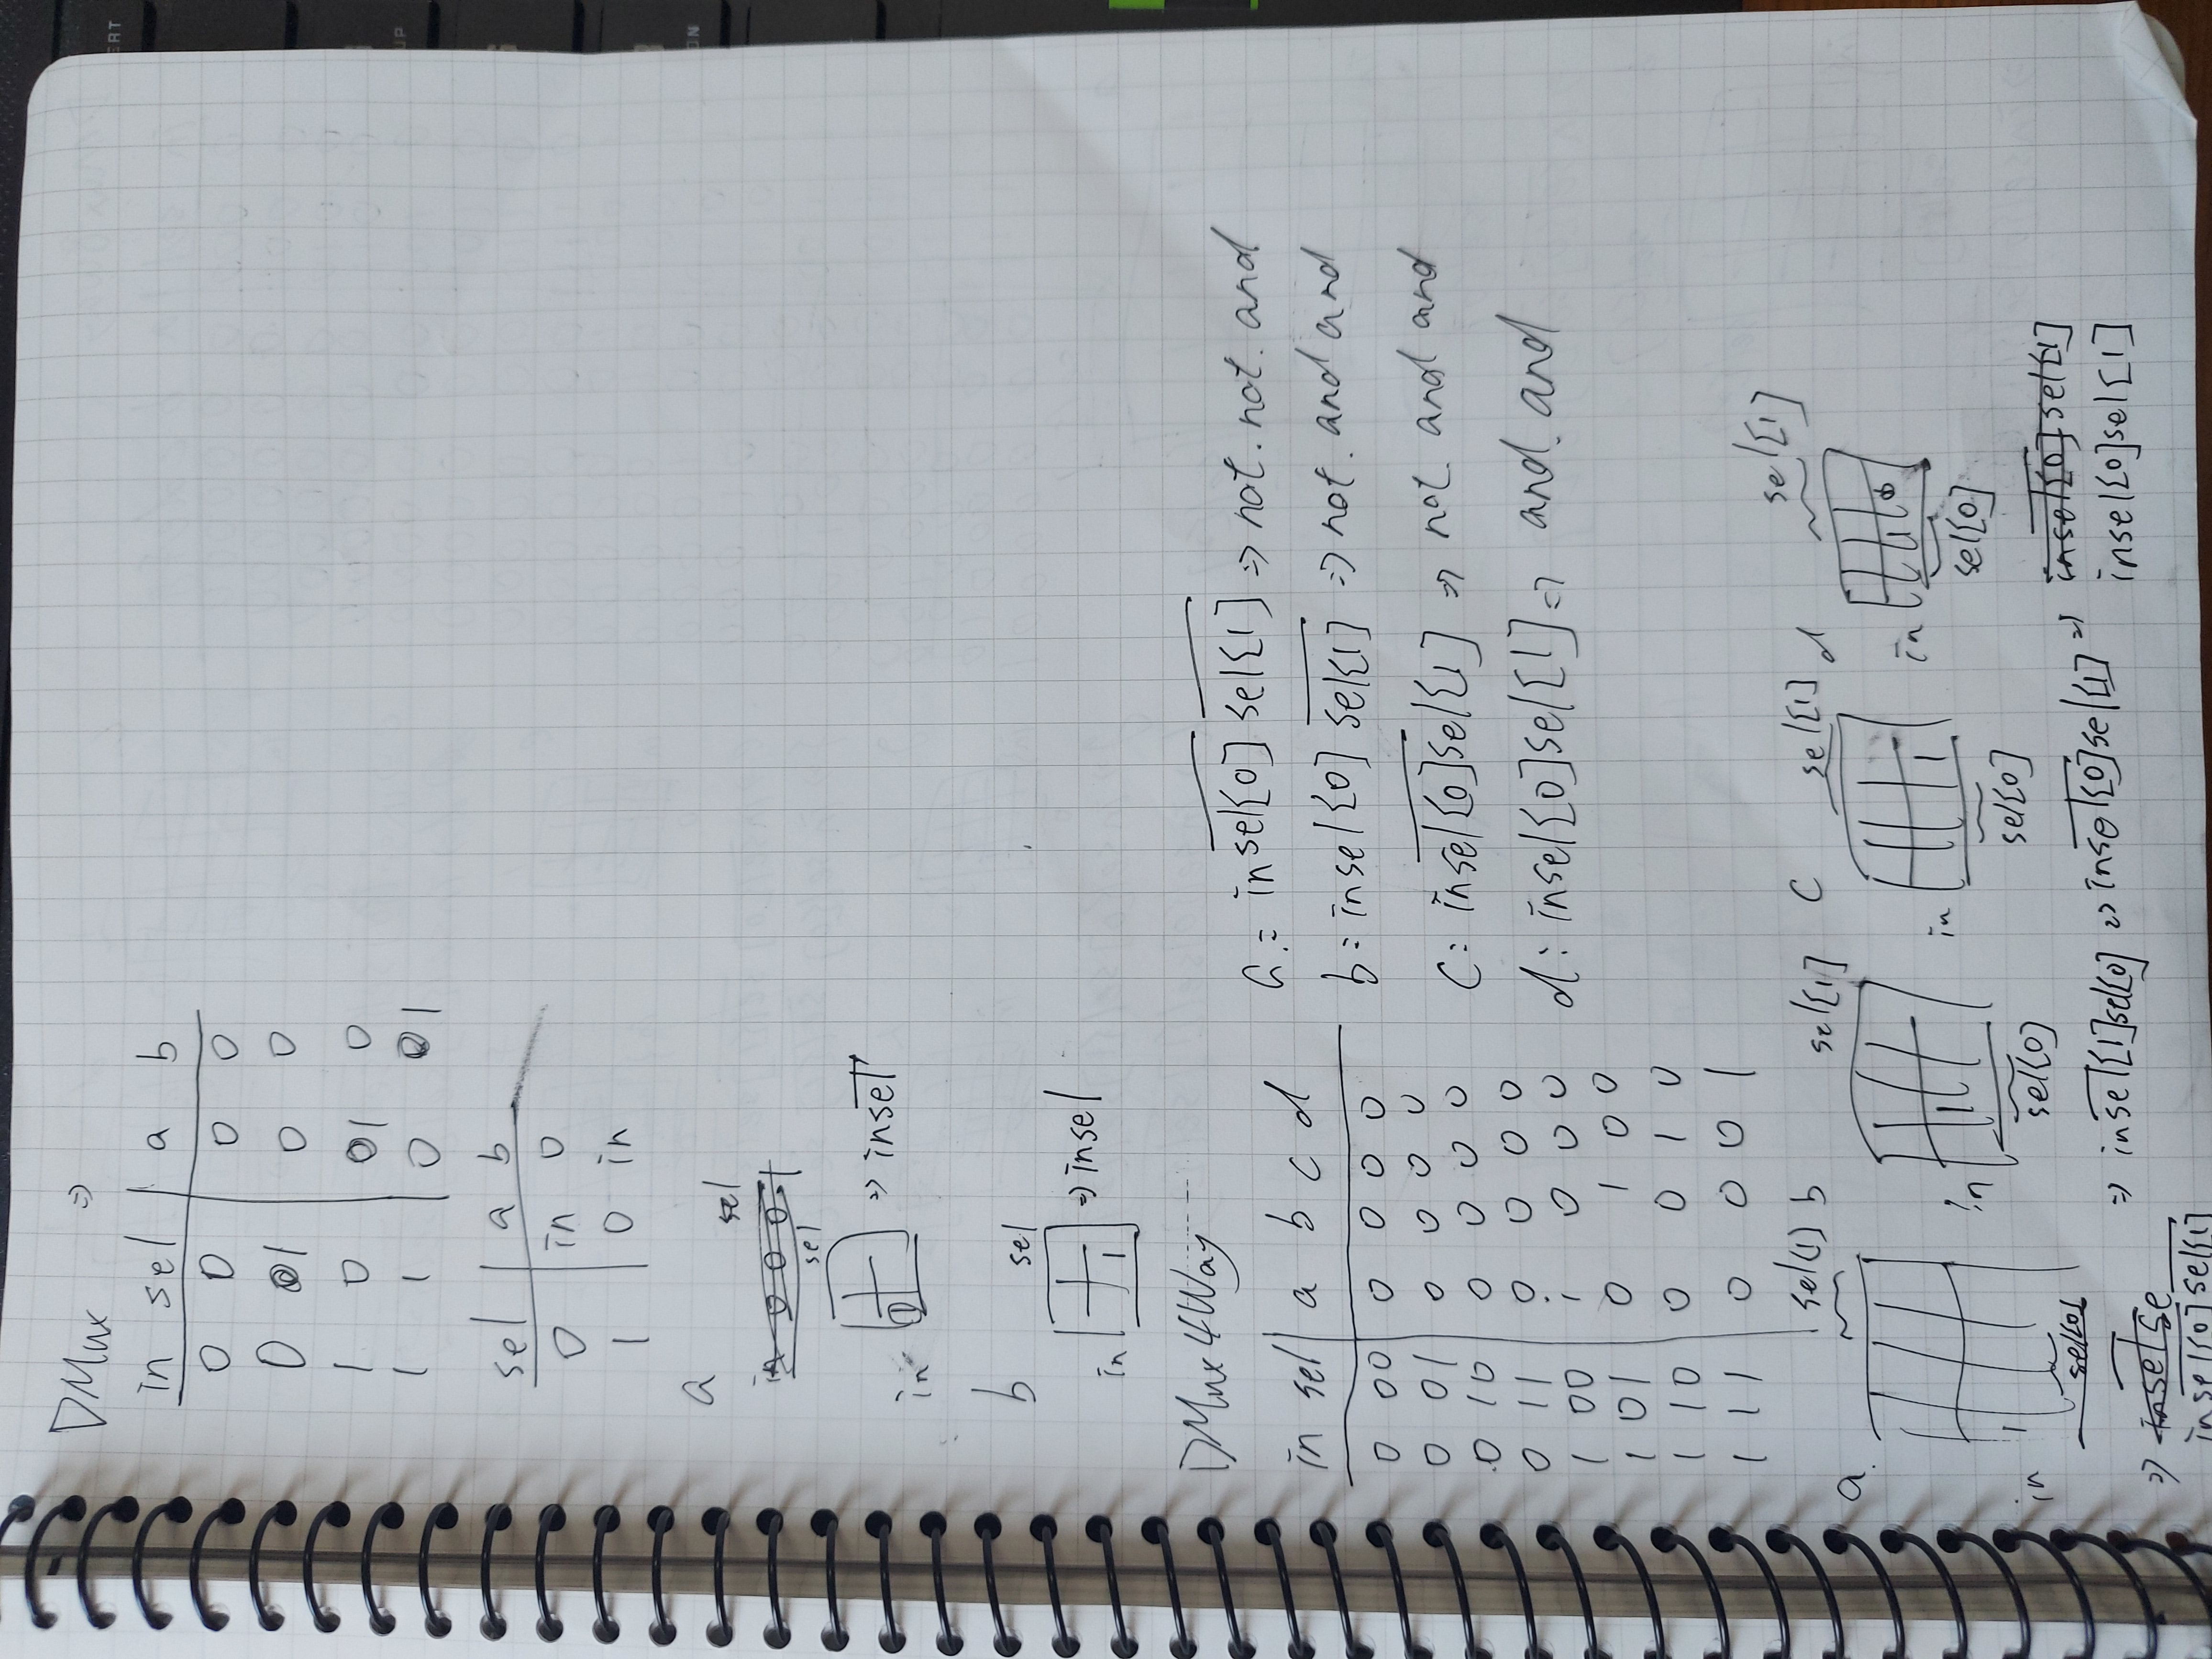 DMux ⇒
in sel a b
0 0 0 0
0 1 0 0
1 0 1 0
1 1 0 1
sel a b
0 in 0
1 0 in
a
sel
in 0 0 0 1
sel
in 1 ⇒ in s̅e̅l̅
b
sel
in 1 ⇒ insel
DMux4Way
in sel a b c d
0 00 0 0 0 0
0 01 0 0 0 0
0 10 0 0 0 0
0 11 0 0 0 0
1 00 1 0 0 0
1 01 0 1 0 0
1 10 0 0 1 0
1 11 0 0 0 1
a: in s̅e̅l̅[̅0̅]̅ s̅e̅l̅[̅1̅]̅ ⇒ not. not. and
b: insel[0] s̅e̅l̅[̅1̅]̅ ⇒ not. and and
c: in s̅e̅l̅[̅0̅]̅ sel[1] ⇒ not. and and
d: insel[0]sel[1] ⇒ and. and
a.
sel[1]
in 1
sel[0]
⇒ insel se
in s̅e̅l̅[̅0̅]̅ s̅e̅l̅[̅1̅]̅
b
sel[1]
in 1
sel[0]
⇒ in s̅e̅l̅[1]sel[0]
c
sel[1]
in 1
sel[0]
⇒ in s̅e̅l̅[̅0̅]̅sel[1]
d
sel[1]
in 1
sel[0]
⇒ in s̅e̅l̅[̅0̅]̅sel[1]
insel[0]sel[1]
ERT
UP
ON